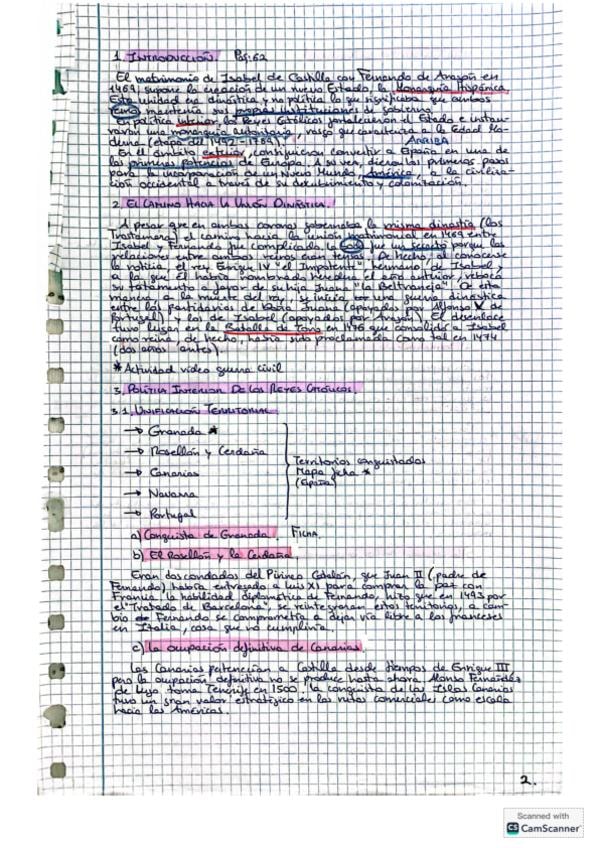 1. INTRODUCCIÓN. Pág: 62
El matrimonio de Isabel de Castilla con Fernando de Aragón en
1469, supone la creación de un nuevo Estado, la Monarquía Hispánica.
Esta unidad era dinástica y no política lo que significaba que ambos
reinos mantenía sus propias instituciones de gobierno.
En política interior, los Reyes Católicos fortalecieron el Estado e instau-
raron una monarquía autoritaria, rasgo que caracteriza a la Edad Mo-
derna (etapa del 1492-1789). ARRIBA
En el ámbito exterior, consiguieron convertir a España en una de
las primeras potencias de Europa. A su vez, dieron los primeros pasos
para la incorporación de un Nuevo Mundo, América, a la civiliza-
ción occidental a través de su descubrimiento y colonización.
2. EL CAMINO HACIA LA UNIÓN DINÁSTICA.
A pesar que en ambas coronas gobernaba la misma dinastía (los
Trastámara) el camino hacia la unión matrimonial en 1469 entre
Isabel y Fernando fue complicado, la fue un secreto porque las
relaciones entre ambos reinos eran tensas. De hecho, al conocerse
la noticia, el rey Enrique IV "el Impotente", hermano de Isabel y
a la que él había nombrado heredera el año anterior, revocó
su testamento a favor de su hija Juana "la Beltraneja". De esta
manera, a la muerte del rey, se inicia una guerra dinástica
entre los partidarios de Doña Juana (apoyados por Alfonso V de
Portugal) y los de Isabel (apoyados por Aragón). El desenlace
tuvo lugar en la Batalla de Toro en 1476 que consolidó a Isabel
como reina, de hecho, había sido proclamada como tal en 1474
(dos años antes).
* Actividad video guerra civil
3. POLÍTICA INTERIOR DE LOS REYES CATÓLICOS.
3.1. UNIFICACIÓN TERRITORIAL
→ Granada *
→ Rosellón y Cerdaña
→ Canarias
→ Navarra
→ Portugal
Territorios conquistados
Mapa ficha *
(España)
a) Conquista de Granada. FICHA.
b) El Rosellón y la Cerdaña.
Eran dos condados del Pirineo Catalán, que Juan II (padre de
Fernando) había entregado a Luis XI para comprar la paz con
Francia. La habilidad diplomática de Fernando, hizo que en 1493 por
el "Tratado de Barcelona", se reintegraran estos territorios, a cam-
bio de Fernando se comprometía a dejar vía libre a los franceses
en Italia, cosa que no cumpliría.
c) La ocupación definitiva de Canarias.
Las Canarias pertenecían a Castilla desde tiempos de Enrique III
pero la ocupación definitiva no se produce hasta ahora. Alonso Fernández
de Lugo toma Tenerife en 1500. La conquista de las Islas Canarias
tuvo un gran valor estratégico en las rutas comerciales como escala
hacia las Américas.
2.
Scanned with
CS CamScanner